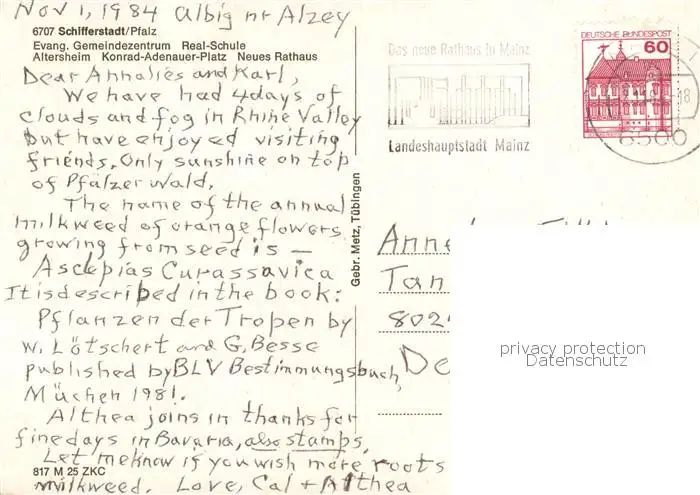 Nov 1, 1984 Albig nr Alzey
6707 Schifferstadt/Pfalz
Evang. Gemeindezentrum Real-Schule
Altersheim Konrad-Adenauer-Platz Neues Rathaus
Dear Annalies and Karl,
We have had 4 days of
clouds and fog in Rhine Valley
but have enjoyed visiting
friends. Only sunshine on top
of Pfälzer Wald.
The name of the annual
milkweed of orange flowers
growing from seed is —
Asclepias Curassavica
It is described in the book:
Pflanzen der Tropen by
W. Lötschert and G. Besse
published by BLV Bestimmungsbuch,
Müchen 1981.
Althea joins in thanks for
fine days in Bavaria, also stamps.
Let me know if you wish more roots
milkweed. Love, Cal + Althea
817 M 25 ZKC
Gebr. Metz, Tübingen
Das neue Rathaus in Mainz
Landeshauptstadt Mainz
DEUTSCHE BUNDESPOST
60
-18
6500
Anne
Tan
802
De
privacy protection
Datenschutz